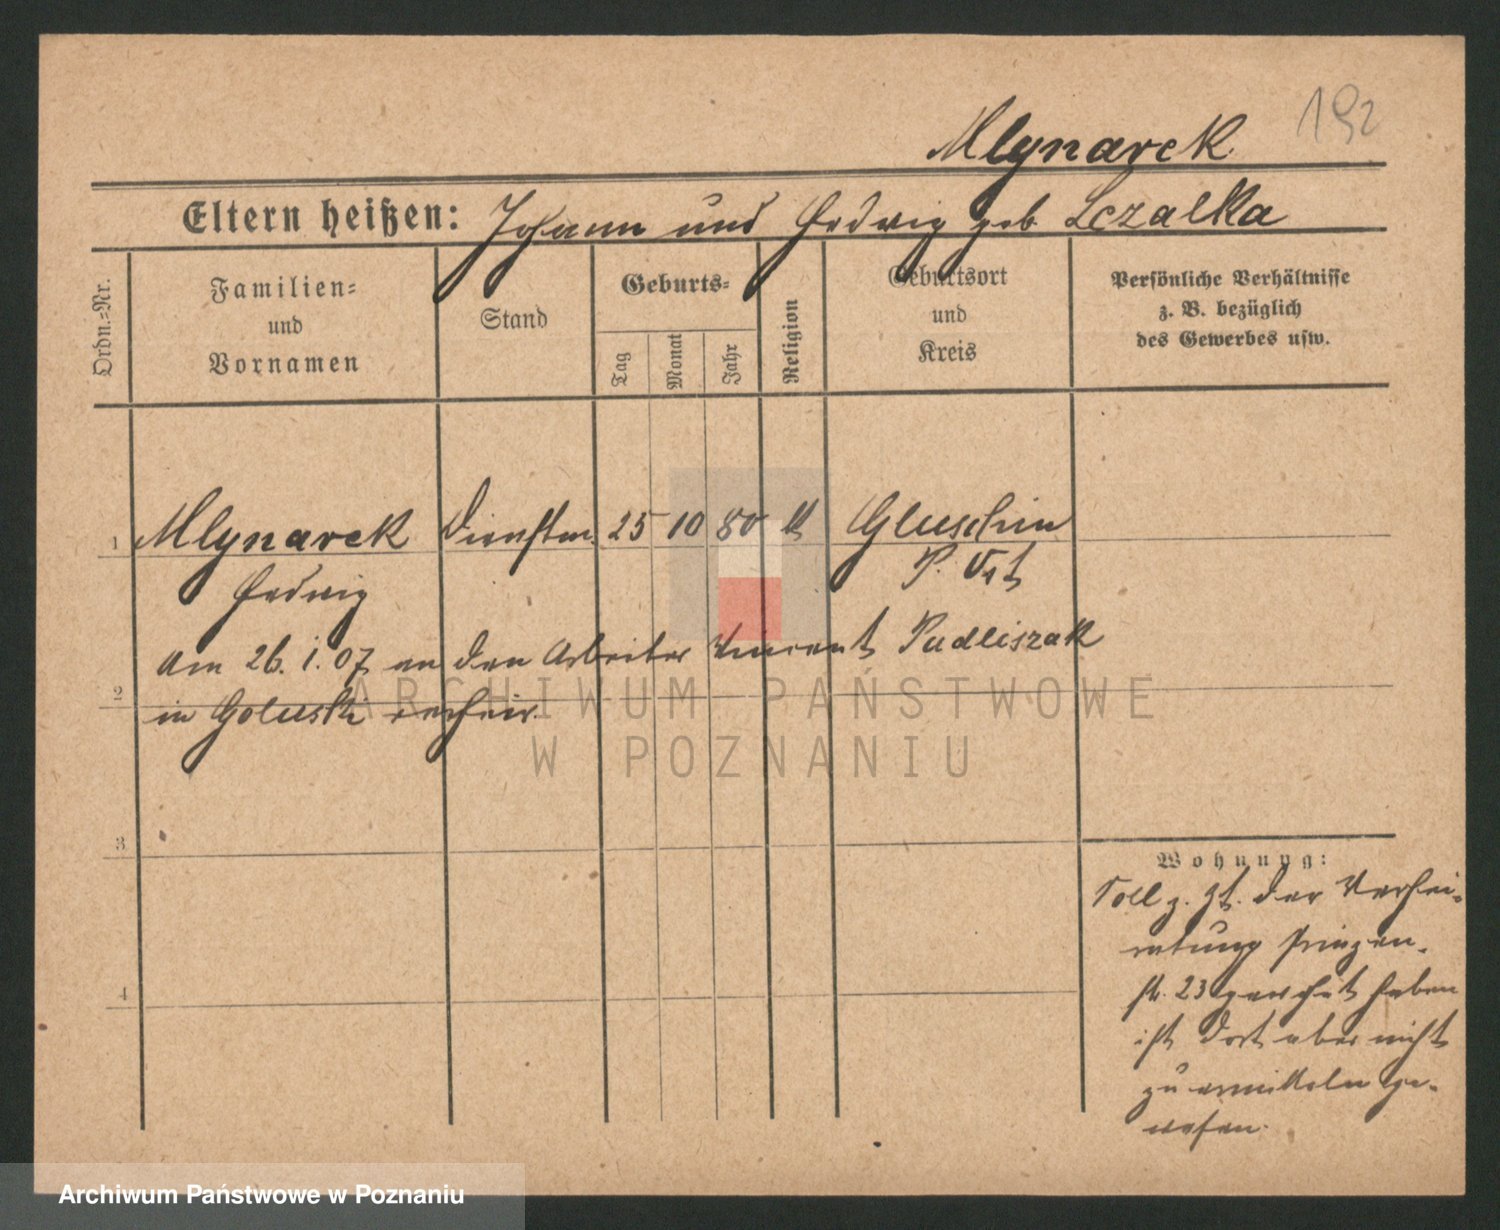 192
Mlynarek
Eltern heißen: Johann und Hedwig geb. Lczalka
Ordn.-Nr.
Familien- und Vornamen
Stand
Geburts-
Tag
Monat
Jahr
Religion
Geburtsort und Kreis
Persönliche Verhältnisse
z. B. bezüglich
des Gewerbes usw.
1 Mlynarek Dienstm. 25 10 80 k Gluschin
Hedwig P. Ost
am 26. 1. 07 an den Arbeiter Vincent Pudliszak
2
in Golusk verheir.
3
4
Wohnung:
Soll z. Zt. der Verhei-
ratung Prinzen-
str. 23 gewohnt haben
ist dort aber nicht
zu ermitteln ge-
wesen.
ARCHIWUM PAŃSTWOWE
W POZNANIU
Archiwum Państwowe w Poznaniu